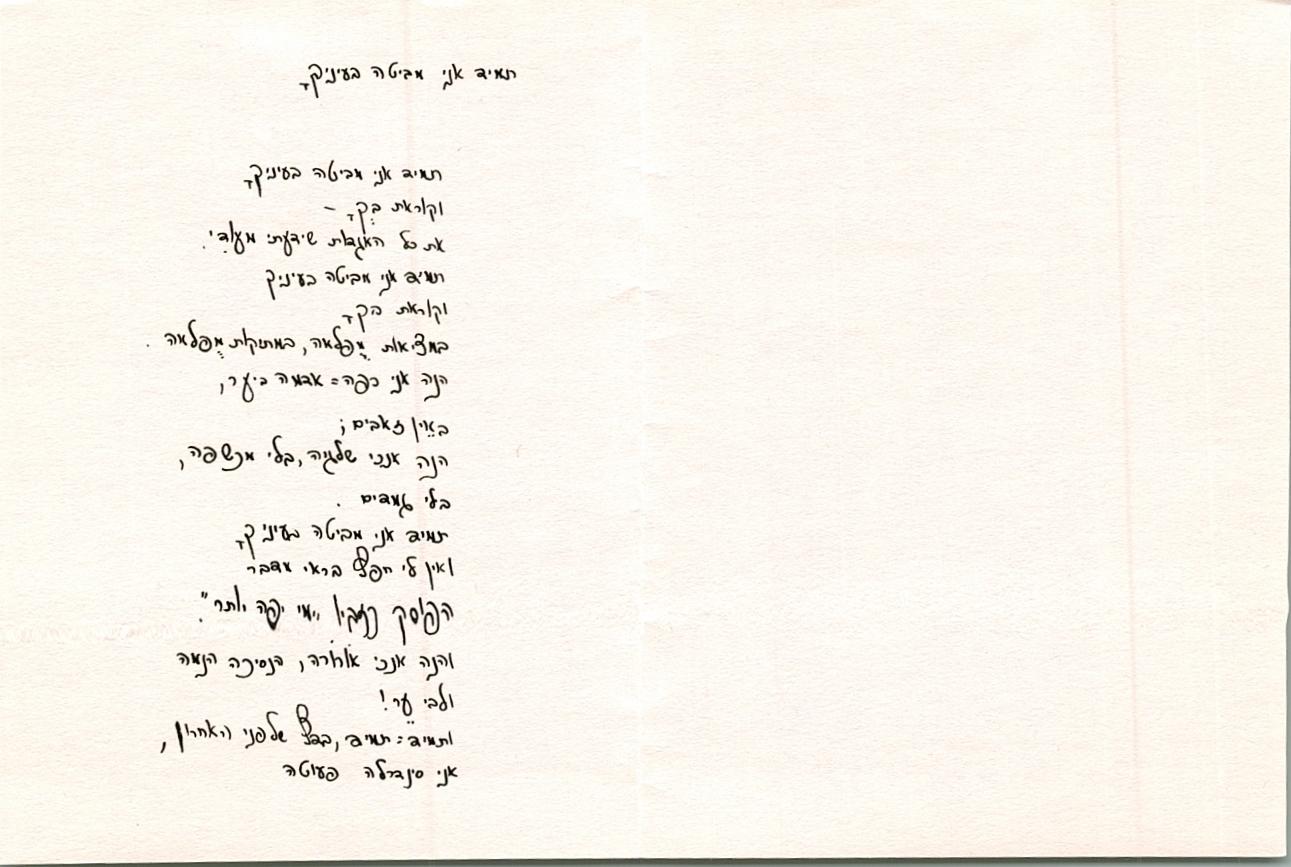 תמיד אני מביטה בעיניךָ
תמיד אני מביטה בעיניךָ
וקוראת בְּךָ –
את כל האגדות שידעתי מעודִי.
תמיד אני מביטה בעיניך
וקוראת בךָ
במציאות מֻפלאה, במתיקות מֻפלאה.
הנה אני כפה=אדמה ביער,
באֵין זאבים;
הנה אנכי שלגיה, בלי מכשפה,
בלי גמדים.
תמיד אני מביטה בעיניךָ
ואין לי חפץ בראי מדבר
הפוסק "מי יפה יותר".
והנה אנכי אורורה, הנסיכה הנמה
ולבי עֵר!
ותמיד=תמיד, בבֹּץ שלפני האחרון,
אני סינדרלה פעוטה